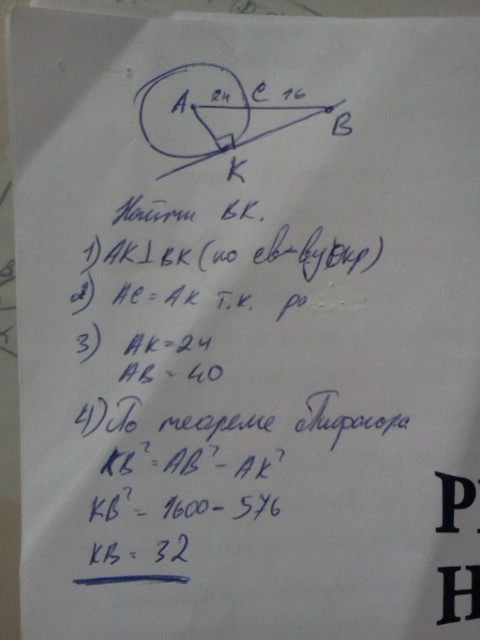 A 24 C 16
B
K
Найти BK.
1) AK⊥BK (по св-ву окр)
2) AC = AK т.к. ра
3) AK = 24
AB = 40
4) По теореме Пифагора
KB² = AB² - AK²
KB² = 1600 - 576
KB = 32